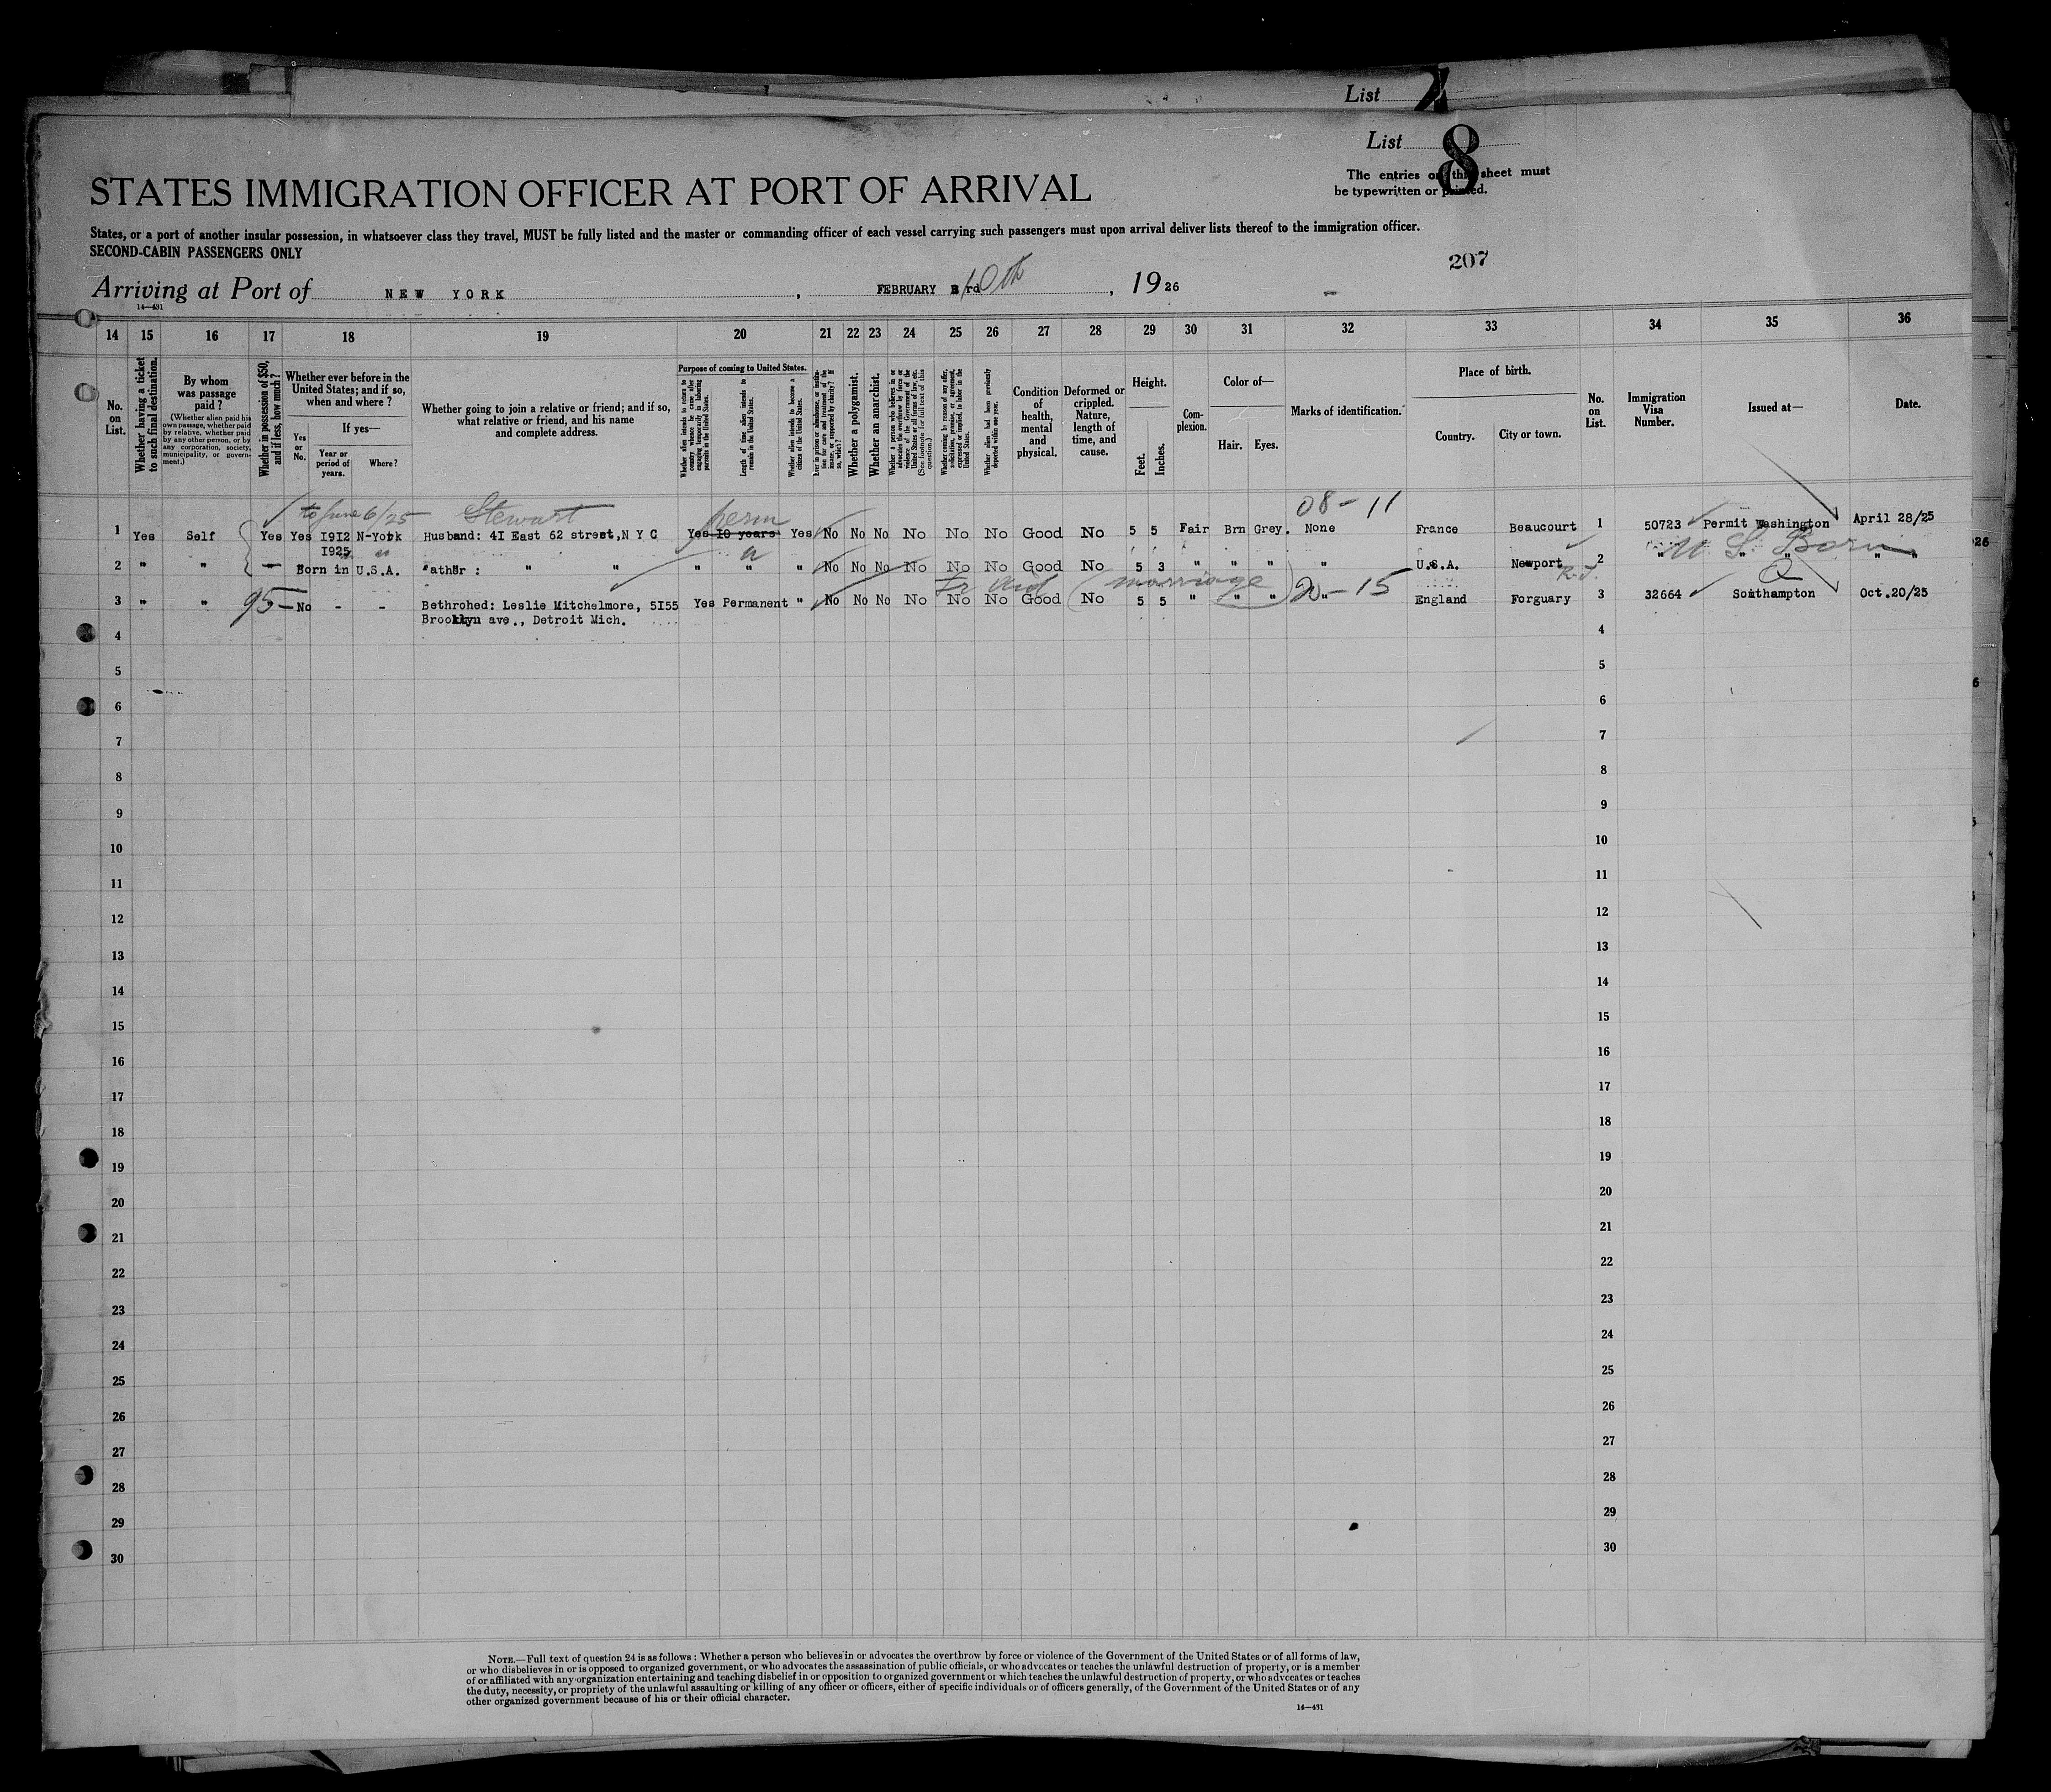 List
List 8
The entries on this sheet must
be typewritten or printed.
STATES IMMIGRATION OFFICER AT PORT OF ARRIVAL
States, or a port of another insular possession, in whatsoever class they travel, MUST be fully listed and the master or commanding officer of each vessel carrying such passengers must upon arrival deliver lists thereof to the immigration officer.
SECOND-CABIN PASSENGERS ONLY
207
Arriving at Port of NEW YORK, FEBRUARY 3rd 10th, 1926
14—431
14 15 16 17 18 19 20 21 22 23 24 25 26 27 28 29 30 31 32 33 34 35 36
No. on List.
Whether having a ticket to such final destination.
By whom was passage paid?
(Whether alien paid his own passage, whether paid by relative, whether paid by any other person, or by any corporation, society, municipality, or government.)
Whether in possession of $50, and if less, how much?
Whether ever before in the United States; and if so, when and where?
Yes or No.
If yes—
Year or period of years.
Where?
Whether going to join a relative or friend; and if so, what relative or friend, and his name and complete address.
Purpose of coming to United States.
Whether alien intends to return to country whence he came after engaging temporarily in laboring pursuits in the United States.
Length of time alien intends to remain in the United States.
Whether alien intends to become a citizen of the United States.
Ever in prison or almshouse, or institution for care and treatment of the insane, or supported by charity? If so, which?
Whether a polygamist.
Whether an anarchist.
Whether a person who believes in or advocates the overthrow by force or violence of the Government of the United States or all forms of law, etc. (See footnote for full text of this question.)
Whether coming by reason of any offer, solicitation, promise, or agreement, expressed or implied, to labor in the United States.
Whether alien had been previously deported within one year.
Condition of health, mental and physical.
Deformed or crippled. Nature, length of time, and cause.
Height.
Feet.
Inches.
Complexion.
Color of—
Hair.
Eyes.
Marks of identification.
Place of birth.
Country.
City or town.
No. on List.
Immigration Visa Number.
Issued at—
Date.
to June 6/25 Stewart perm 08-11
1 Yes Self Yes Yes 1912 N-York Husband: 41 East 62 street, N Y C Yes 10 years Yes No No No No No No Good No 5 5 Fair Brn Grey. None France Beaucourt 1 50723 Permit Washington April 28/25
1925 " " U S Born
2 " " — Born in U.S.A. Father : " " " " " No No No No No No Good No 5 3 " " " " U.S.A. Newport R.I. 2 " " " " "
marriage 20-15
3 " " 95— No - - Bethrohed: Leslie Mitchelmore, 5155 Yes Permanent " No No No No No No Good No 5 5 " " " " England Forguary 3 32664 Southampton Oct.20/25
Brooklyn ave., Detroit Mich.
4 4
5 5
6 6
7 7
8 8
9 9
10 10
11 11
12 12
13 13
14 14
15 15
16 16
17 17
18 18
19 19
20 20
21 21
22 22
23 23
24 24
25 25
26 26
27 27
28 28
29 29
30 30
NOTE.—Full text of question 24 is as follows: Whether a person who believes in or advocates the overthrow by force or violence of the Government of the United States or of all forms of law,
or who disbelieves in or is opposed to organized government, or who advocates the assassination of public officials, or who advocates or teaches the unlawful destruction of property, or is a member
of or affiliated with any organization entertaining and teaching disbelief in or opposition to organized government or which teaches the unlawful destruction of property, or who advocates or teaches
the duty, necessity, or propriety of the unlawful assaulting or killing of any officer or officers, either of specific individuals or of officers generally, of the Government of the United States or of any
other organized government because of his or their official character.
14—431